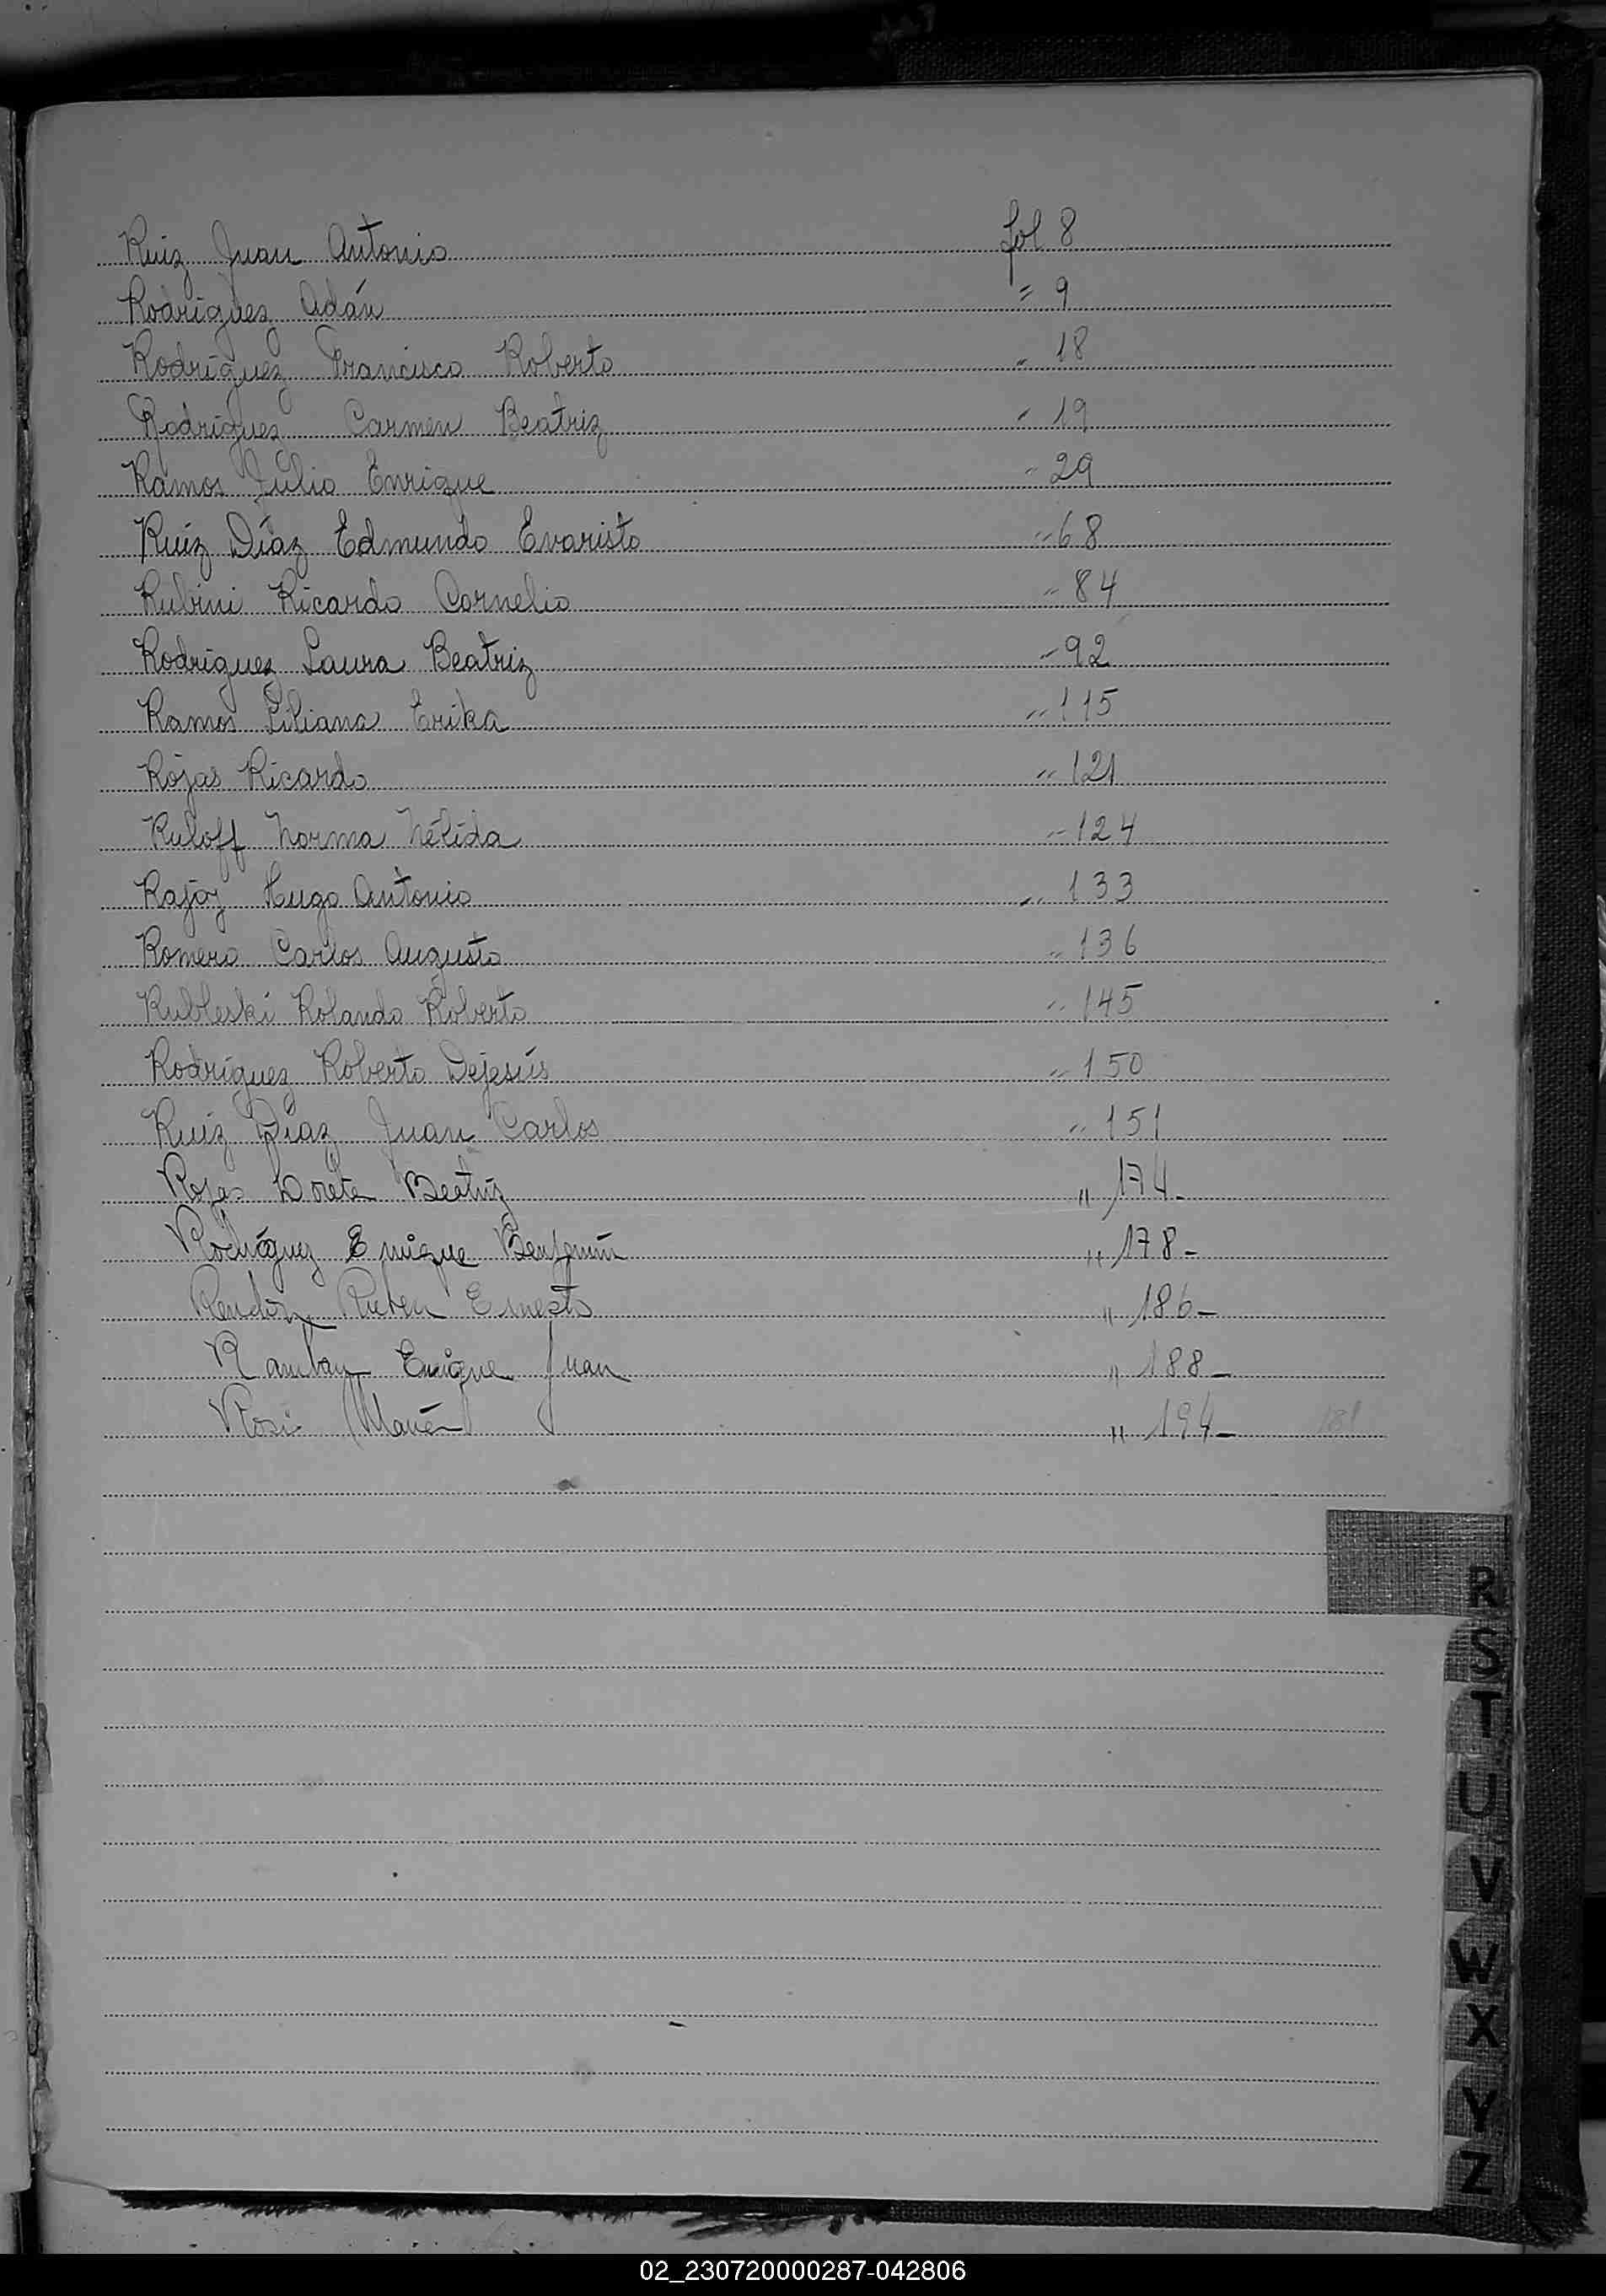 Ruiz Juan Antonio fol 8
Rodriguez Adán " 9
Rodríguez Francisco Roberto " 18
Rodríguez Carmen Beatriz " 19
Ramos Julio Enrique " 29
Ruíz Díaz Edmundo Evaristo " 68
Rubini Ricardo Cornelio " 84
Rodriguez Laura Beatriz " 92
Ramos Liliana Erika " 115
Rojas Ricardo " 121
Ruloff Norma Nélida " 124
Hugo Antonio " 133
Romero Carlos Augusto " 136
Rubleski Rolando Roberto " 145
Rodríguez Roberto Dejesús " 150
Ruiz Díaz Juan Carlos " 151
Rojas Beatriz " 174-
Rodríguez Enrique Benjamín " 178-
Ruben Ernesto " 186-
Enrique Juan " 188-
" 194- 181
R
S
T
U
V
W
X
Y
Z
02_230720000287-042806